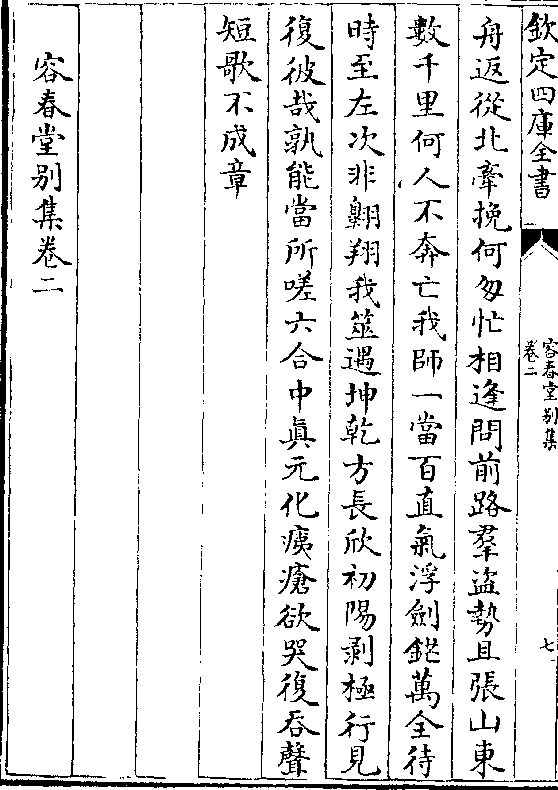 欽定四庫全書
容春堂別集
卷二
七
舟返從北牽挽何匆忙相逢問前路羣盜勢且張山東
數千里何人不奔亡我師一當百直氣浮劍鋩萬全待
時至左次非翺翔我筮遇坤乾方長欣初陽剥極行見
復彼哉孰能當所嗟六合中真元化痍瘡欲哭復吞聲
短歌不成章
容春堂别集卷二